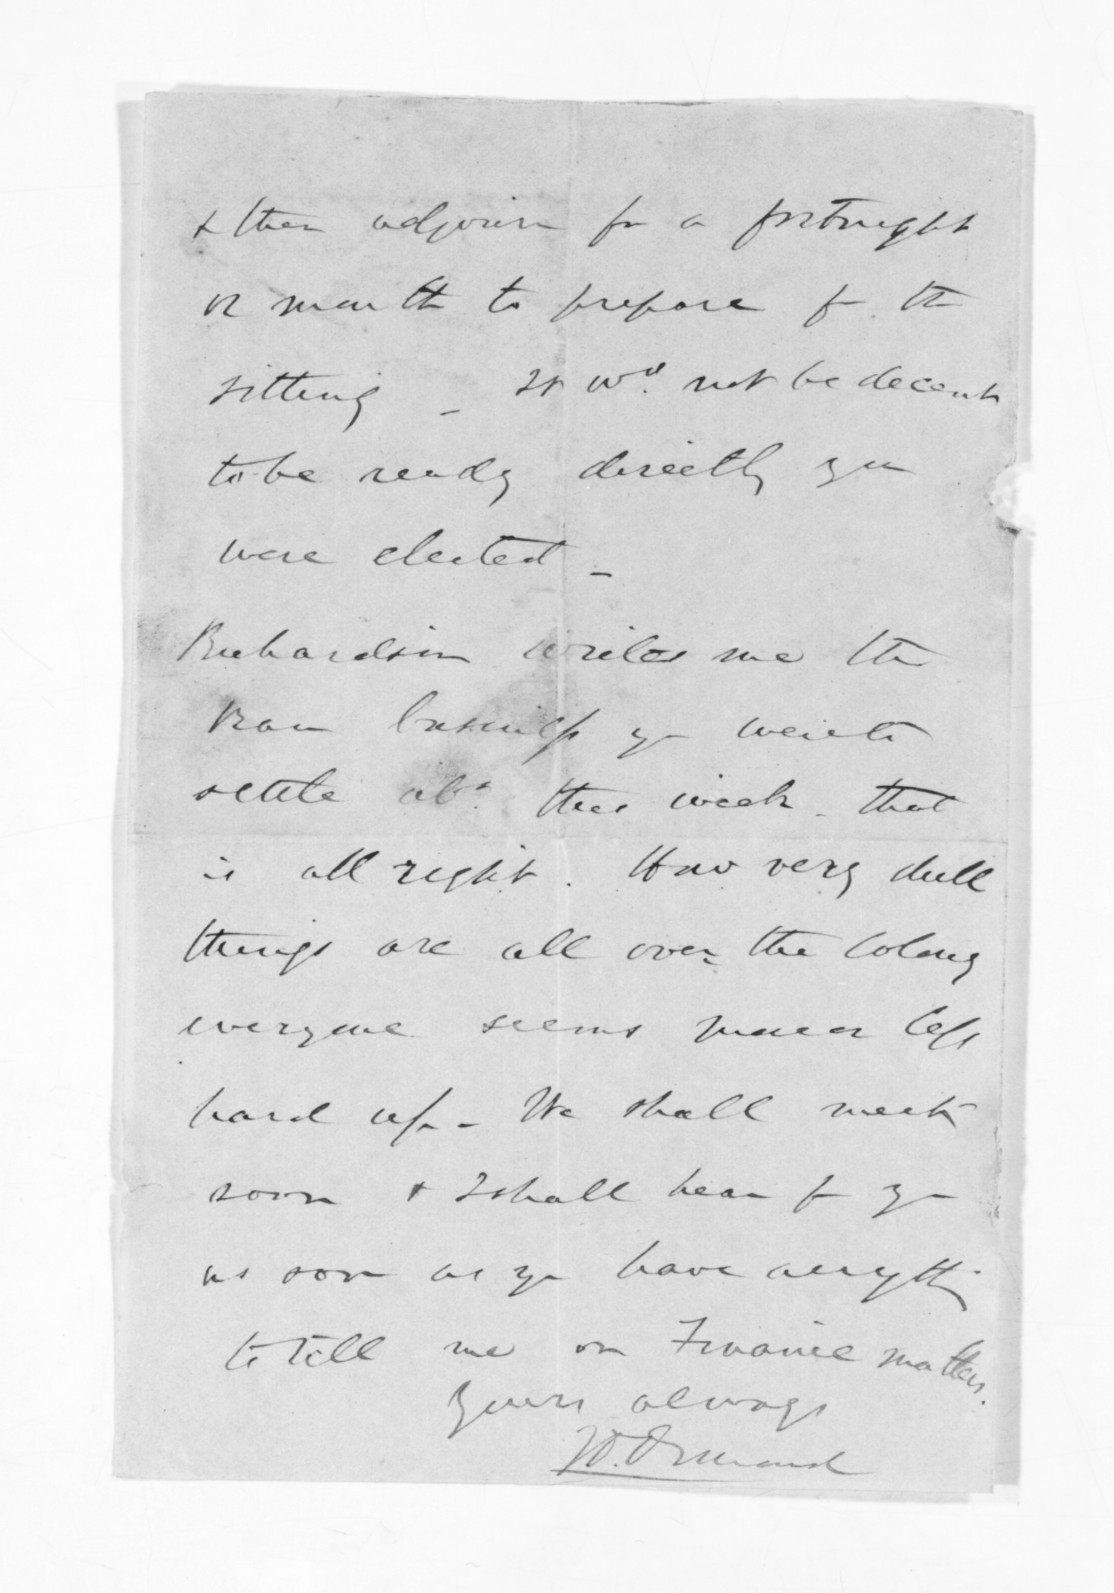 & then adjourn for a fortnight
or month to prepare for the
sitting _ It wd. not be decent
to be ready directly you
were elected _
Richardson writes me the
business you were to
settle abt. this week _ that
is all right. How very dull
things are all over the Colony
everyone seems more or less
hard up _ We shall meet
soon & I shall hear fr you
as soon as you have anythi
to tell me on Finance matters.
Yours always
J.D. Ormond